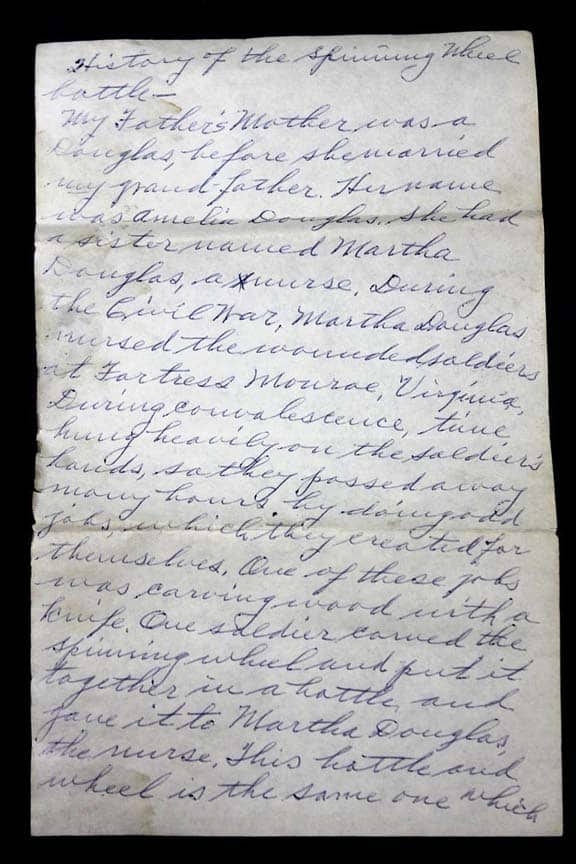 History of the Spinning Wheel
bottle—
My Father's Mother was a
Douglas, before she married
my grand-father. Her name
was Amelia Douglas. She had
a sister named Martha
Douglas, a nurse. During
the Civil War, Martha Douglas
nursed the wounded soldiers
at Fortress Monroe, Virginia,
During convalescence, time
hung heavily on the soldier's
hands, so they passed away
many hours by doing odd
jobs, which they created for
themselves. One of these jobs
was carving wood with a
knife. One soldier carved the
spinning wheel and put it
together in a bottle, and
gave it to Martha Douglas,
the nurse. This bottle and
wheel is the same one which